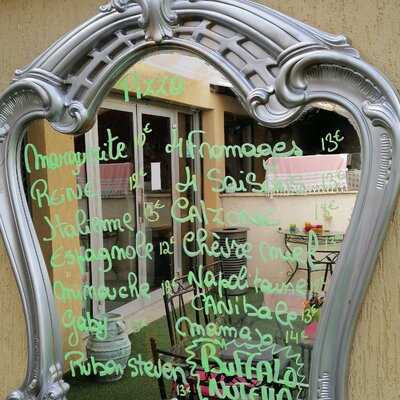 Pizza
Marguerite 9€
Reine 12€
Italienne 13€
Espagnole 12€
Mimouche
Gaby
Ruben Steven 13€
4 Fromages 13€
4 Saisons 13€
Calzone 14€
Chèvre miel
Napolitaine
Canibale 13€
Mamajo 14€
Buffalo
Nutella